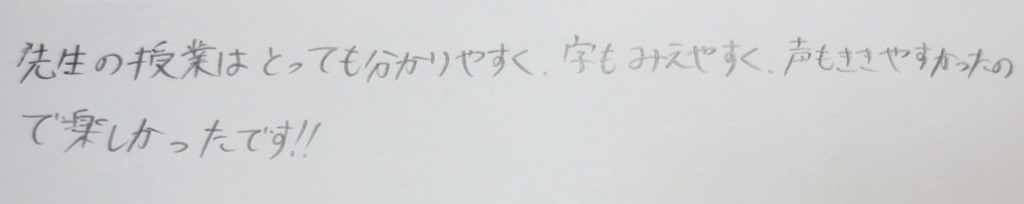 先生の授業はとっても分かりやすく、字もみえやすく、声もききやすかったの
で楽しかったです!!